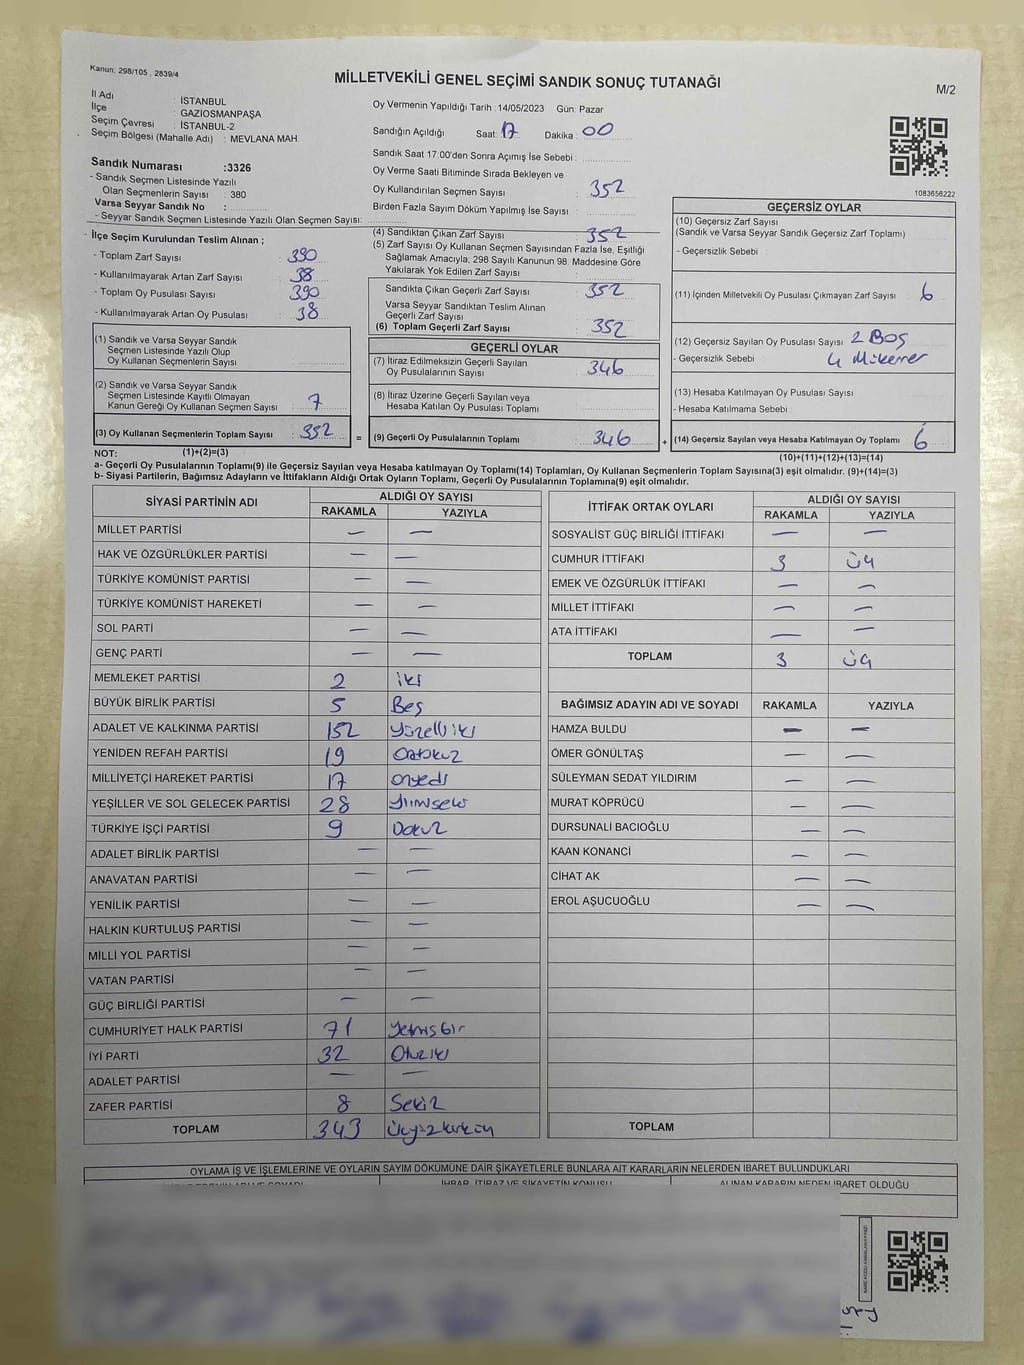 Kanun: 298/105 , 2839/4
MİLLETVEKİLİ GENEL SEÇİMİ SANDIK SONUÇ TUTANAĞI
M/2
İl Adı : İSTANBUL
İlçe : GAZİOSMANPAŞA
Seçim Çevresi : İSTANBUL-2
Seçim Bölgesi (Mahalle Adı) : MEVLANA MAH.
Oy Vermenin Yapıldığı Tarih :14/05/2023 Gün: Pazar
Sandığın Açıldığı Saat: 17 Dakika : 00
Sandık Saat 17:00'den Sonra Açımış İse Sebebi :
Oy Verme Saati Bitiminde Sırada Bekleyen ve
Oy Kullandırılan Seçmen Sayısı : 352
Birden Fazla Sayım Döküm Yapılmış İse Sayısı :
1083656222
Sandık Numarası :3326
- Sandık Seçmen Listesinde Yazılı
Olan Seçmenlerin Sayısı : 380
Varsa Seyyar Sandık No :
- Seyyar Sandık Seçmen Listesinde Yazılı Olan Seçmen Sayısı:
- İlçe Seçim Kurulundan Teslim Alınan ;
- Toplam Zarf Sayısı : 390
- Kullanılmayarak Artan Zarf Sayısı : 38
- Toplam Oy Pusulası Sayısı : 390
- Kullanılmayarak Artan Oy Pusulası : 38
(1) Sandık ve Varsa Seyyar Sandık
Seçmen Listesinde Yazılı Olup
Oy Kullanan Seçmenlerin Sayısı :
(2) Sandık ve Varsa Seyyar Sandık
Seçmen Listesinde Kayıtlı Olmayan
Kanun Gereği Oy Kullanan Seçmen Sayısı : 7
(3) Oy Kullanan Seçmenlerin Toplam Sayısı : 352
(4) Sandıktan Çıkan Zarf Sayısı : 352
(5) Zarf Sayısı Oy Kullanan Seçmen Sayısından Fazla İse, Eşitliği
Sağlamak Amacıyla, 298 Sayılı Kanunun 98. Maddesine Göre
Yakılarak Yok Edilen Zarf Sayısı :
Sandıkta Çıkan Geçerli Zarf Sayısı : 352
Varsa Seyyar Sandıktan Teslim Alınan
Geçerli Zarf Sayısı :
(6) Toplam Geçerli Zarf Sayısı : 352
GEÇERLİ OYLAR
(7) İtiraz Edilmeksizin Geçerli Sayılan
Oy Pusulalarının Sayısı : 346
(8) İtiraz Üzerine Geçerli Sayılan veya
Hesaba Katılan Oy Pusulası Toplamı :
= (9) Geçerli Oy Pusulalarının Toplamı : 346
GEÇERSİZ OYLAR
(10) Geçersiz Zarf Sayısı
(Sandık ve Varsa Seyyar Sandık Geçersiz Zarf Toplamı)
- Geçersizlik Sebebi :
(11) İçinden Milletvekili Oy Pusulası Çıkmayan Zarf Sayısı : 6
(12) Geçersiz Sayılan Oy Pusulası Sayısı : 2 Boş
- Geçersizlik Sebebi : 4 Mükerrer
(13) Hesaba Katılmayan Oy Pusulası Sayısı :
- Hesaba Katılmama Sebebi :
+ (14) Geçersiz Sayılan veya Hesaba Katılmayan Oy Toplamı : 6
NOT: (1)+(2)=(3)
(10)+(11)+(12)+(13)=(14)
a- Geçerli Oy Pusulalarının Toplamı(9) ile Geçersiz Sayılan veya Hesaba katılmayan Oy Toplamı(14) Toplamları, Oy Kullanan Seçmenlerin Toplam Sayısına(3) eşit olmalıdır. (9)+(14)=(3)
b- Siyasi Partilerin, Bağımsız Adayların ve İttifakların Aldığı Ortak Oyların Toplamı, Geçerli Oy Pusulalarının Toplamına(9) eşit olmalıdır.
SİYASİ PARTİNİN ADI ALDIĞI OY SAYISI
RAKAMLA YAZIYLA
MİLLET PARTİSİ — —
HAK VE ÖZGÜRLÜKLER PARTİSİ — —
TÜRKİYE KOMÜNİST PARTİSİ — —
TÜRKİYE KOMÜNİST HAREKETİ — —
SOL PARTİ — —
GENÇ PARTİ — —
MEMLEKET PARTİSİ 2 iki
BÜYÜK BİRLİK PARTİSİ 5 Beş
ADALET VE KALKINMA PARTİSİ 152 Yüzelli iki
YENİDEN REFAH PARTİSİ 19 Ondokuz
MİLLİYETÇİ HAREKET PARTİSİ 17 onyedi
YEŞİLLER VE SOL GELECEK PARTİSİ 28 yirmisekiz
TÜRKİYE İŞÇİ PARTİSİ 9 Dokuz
ADALET BİRLİK PARTİSİ — —
ANAVATAN PARTİSİ — —
YENİLİK PARTİSİ — —
HALKIN KURTULUŞ PARTİSİ — —
MİLLİ YOL PARTİSİ — —
VATAN PARTİSİ — —
GÜÇ BİRLİĞİ PARTİSİ — —
CUMHURİYET HALK PARTİSİ 71 Yetmişbir
İYİ PARTİ 32 Otuziki
ADALET PARTİSİ — —
ZAFER PARTİSİ 8 Sekiz
TOPLAM 343 Üçyüzkırküç
İTTİFAK ORTAK OYLARI ALDIĞI OY SAYISI
RAKAMLA YAZIYLA
SOSYALİST GÜÇ BİRLİĞİ İTTİFAKI — —
CUMHUR İTTİFAKI 3 üç
EMEK VE ÖZGÜRLÜK İTTİFAKI — —
MİLLET İTTİFAKI — —
ATA İTTİFAKI — —
TOPLAM 3 üç
BAĞIMSIZ ADAYIN ADI VE SOYADI RAKAMLA YAZIYLA
HAMZA BULDU — —
ÖMER GÖNÜLTAŞ — —
SÜLEYMAN SEDAT YILDIRIM — —
MURAT KÖPRÜCÜ — —
DURSUNALİ BACIOĞLU — —
KAAN KONANCİ — —
CİHAT AK — —
EROL AŞUCUOĞLU — —
TOPLAM
OYLAMA İŞ VE İŞLEMLERİNE VE OYLARIN SAYIM DÖKÜMÜNE DAİR ŞİKAYETLERLE BUNLARA AİT KARARLARIN NELERDEN İBARET BULUNDUKLARI
İHBAR, İTİRAZ VE ŞİKAYETİN KONUSU ALINAN KARARIN NEDEN İBARET OLDUĞU